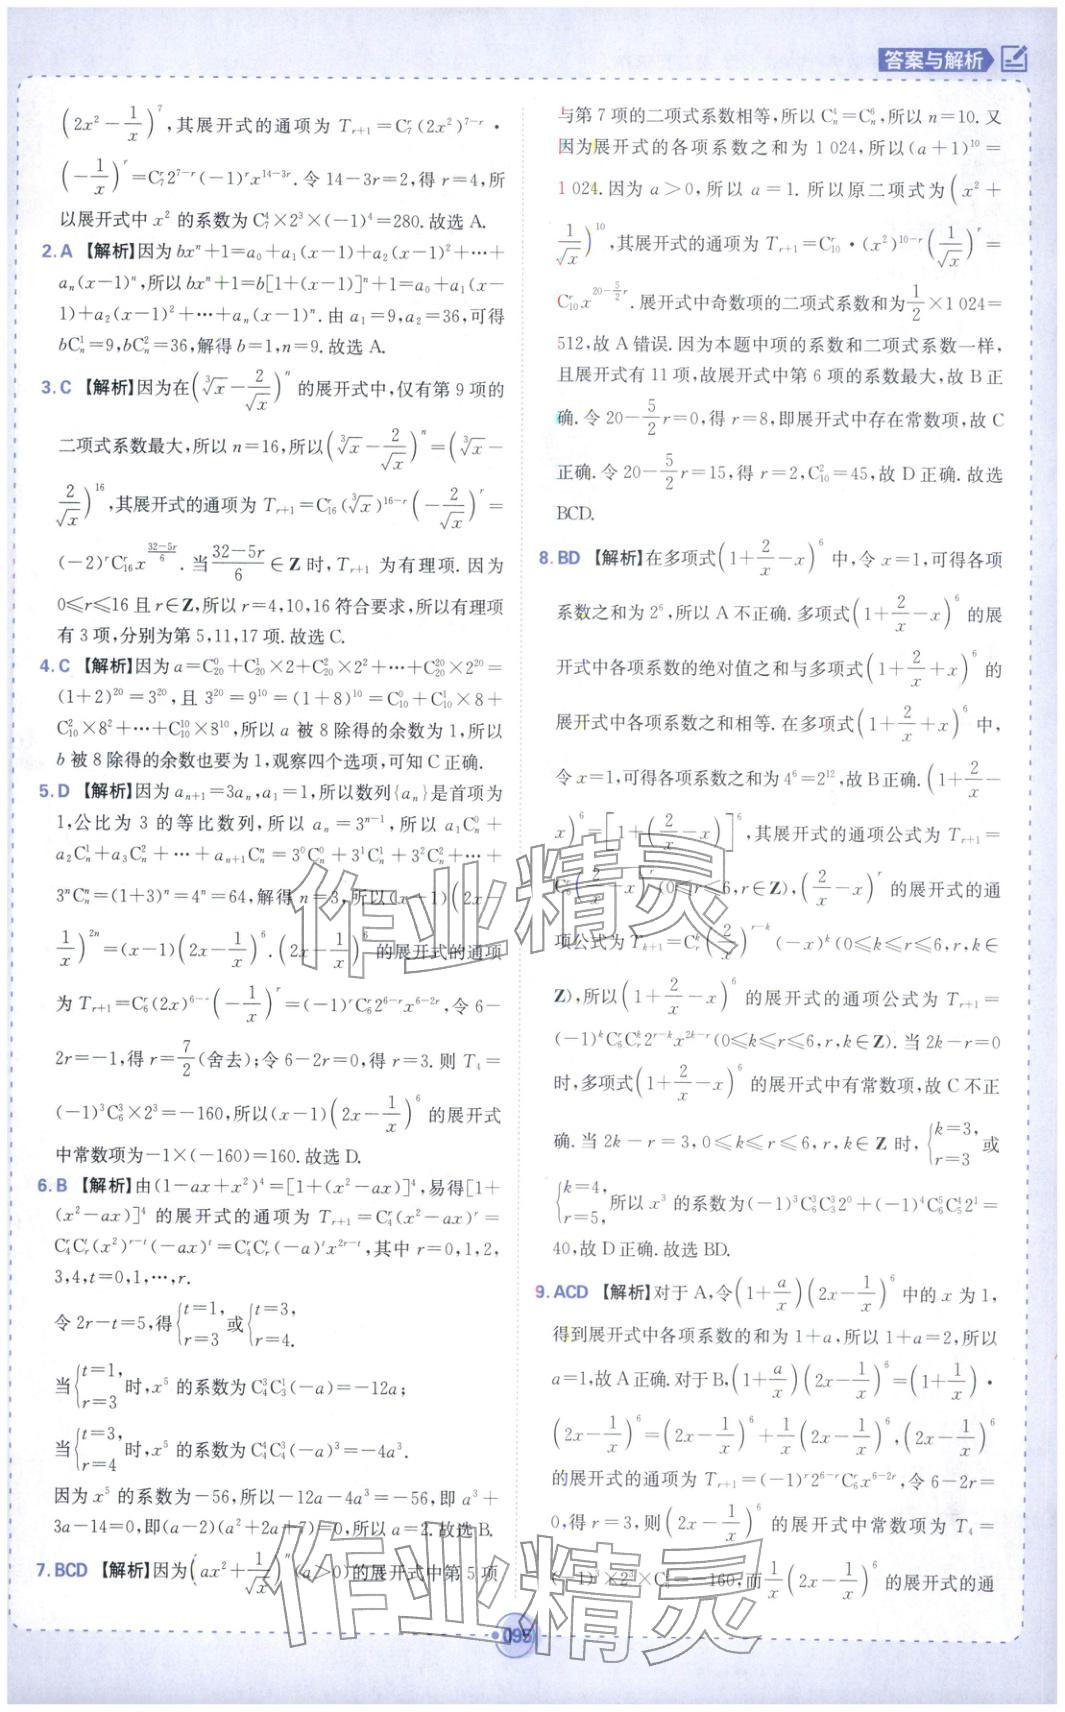 答案与解析
(2x²−1/x)⁷,其展开式的通项为 Tᵣ₊₁=C₇ʳ(2x²)⁷⁻ʳ·
(−1/x)ʳ=C₇ʳ2⁷⁻ʳ(−1)ʳx¹⁴⁻³ʳ.令 14−3r=2,得 r=4,所
以展开式中 x² 的系数为 C₇⁴×2³×(−1)⁴=280.故选 A.
2.A 【解析】因为 bxⁿ+1=a₀+a₁(x−1)+a₂(x−1)²+⋯+
aₙ(x−1)ⁿ,所以 bxⁿ+1=b[1+(x−1)]ⁿ+1=a₀+a₁(x−
1)+a₂(x−1)²+⋯+aₙ(x−1)ⁿ.由 a₁=9,a₂=36,可得
bCₙ¹=9,bCₙ²=36,解得 b=1,n=9.故选 A.
3.C 【解析】因为在(∛x−2/√x)ⁿ 的展开式中,仅有第 9 项的
二项式系数最大,所以 n=16,所以(∛x−2/√x)ⁿ=(∛x−
2/√x)¹⁶,其展开式的通项为 Tᵣ₊₁=C₁₆ʳ(∛x)¹⁶⁻ʳ(−2/√x)ʳ=
(−2)ʳC₁₆ʳx^((32−5r)/6).当(32−5r)/6∈Z 时,Tᵣ₊₁ 为有理项.因为
0≤r≤16 且 r∈Z,所以 r=4,10,16 符合要求,所以有理项
有 3 项,分别为第 5,11,17 项.故选 C.
4.C 【解析】因为 a=C₂₀⁰+C₂₀¹×2+C₂₀²×2²+⋯+C₂₀²⁰×2²⁰=
(1+2)²⁰=3²⁰,且 3²⁰=9¹⁰=(1+8)¹⁰=C₁₀⁰+C₁₀¹×8+
C₁₀²×8²+⋯+C₁₀¹⁰×8¹⁰,所以 a 被 8 除得的余数为 1,所以
b 被 8 除得的余数也要为 1,观察四个选项,可知 C 正确.
5.D 【解析】因为 aₙ₊₁=3aₙ,a₁=1,所以数列{aₙ}是首项为
1,公比为 3 的等比数列,所以 aₙ=3ⁿ⁻¹,所以 a₁Cₙ⁰+
a₂Cₙ¹+a₃Cₙ²+⋯+aₙ₊₁Cₙⁿ=3⁰Cₙ⁰+3¹Cₙ¹+3²Cₙ²+⋯+
3ⁿCₙⁿ=(1+3)ⁿ=4ⁿ=64,解得 n=3,所以(x−1)(2x−
1/x)²ⁿ=(x−1)(2x−1/x)⁶.(2x−1/x)⁶ 的展开式的通项
为 Tᵣ₊₁=C₆ʳ(2x)⁶⁻ʳ(−1/x)ʳ=(−1)ʳC₆ʳ2⁶⁻ʳx⁶⁻²ʳ,令 6−
2r=−1,得 r=7/2(舍去);令 6−2r=0,得 r=3.则 T₄=
(−1)³C₆³×2³=−160,所以(x−1)(2x−1/x)⁶ 的展开式
中常数项为−1×(−160)=160.故选 D.
6.B 【解析】由(1−ax+x²)⁴=[1+(x²−ax)]⁴,易得[1+
(x²−ax)]⁴ 的展开式的通项为 Tᵣ₊₁=C₄ʳ(x²−ax)ʳ=
C₄ʳCᵣᵗ(x²)ʳ⁻ᵗ(−ax)ᵗ=C₄ʳCᵣᵗ(−a)ᵗx²ʳ⁻ᵗ,其中 r=0,1,2,
3,4,t=0,1,⋯,r.
令 2r−t=5,得{t=1, r=3 或{t=3, r=4.
当{t=1, r=3 时,x⁵ 的系数为 C₄³C₃¹(−a)=−12a;
当{t=3, r=4 时,x⁵ 的系数为 C₄⁴C₄³(−a)³=−4a³.
因为 x⁵ 的系数为−56,所以−12a−4a³=−56,即 a³+
3a−14=0,即(a−2)(a²+2a+7)=0,所以 a=2.故选 B.
7.BCD 【解析】因为(ax²+1/√x)ⁿ(a>0)的展开式中第 5 项
与第 7 项的二项式系数相等,所以 Cₙ⁴=Cₙ⁶,所以 n=10.又
因为展开式的各项系数之和为 1 024,所以(a+1)¹⁰=
1 024.因为 a>0,所以 a=1.所以原二项式为(x²+
1/√x)¹⁰,其展开式的通项为 Tᵣ₊₁=C₁₀ʳ·(x²)¹⁰⁻ʳ(1/√x)ʳ=
C₁₀ʳx^(20−5/2r).展开式中奇数项的二项式系数和为1/2×1 024=
512,故 A 错误.因为本题中项的系数和二项式系数一样,
且展开式有 11 项,故展开式中第 6 项的系数最大,故 B 正
确.令 20−5/2r=0,得 r=8,即展开式中存在常数项,故 C
正确.令 20−5/2r=15,得 r=2,C₁₀²=45,故 D 正确.故选
BCD.
8.BD 【解析】在多项式(1+2/x−x)⁶ 中,令 x=1,可得各项
系数之和为 2⁶,所以 A 不正确.多项式(1+2/x−x)⁶ 的展
开式中各项系数的绝对值之和与多项式(1+2/x+x)⁶ 的
展开式中各项系数之和相等.在多项式(1+2/x+x)⁶ 中,
令 x=1,可得各项系数之和为 4⁶=2¹²,故 B 正确.(1+2/x−
x)⁶=[1+(2/x−x)]⁶,其展开式的通项公式为 Tᵣ₊₁=
C₆ʳ(2/x−x)ʳ(0≤r≤6,r∈Z),(2/x−x)ʳ 的展开式的通
项公式为 Tₖ₊₁=Cᵣᵏ(2/x)ʳ⁻ᵏ(−x)ᵏ(0≤k≤r≤6,r,k∈
Z),所以(1+2/x−x)⁶ 的展开式的通项公式为 Tᵣ₊₁=
(−1)ᵏC₆ʳCᵣᵏ2ʳ⁻ᵏx²ᵏ⁻ʳ(0≤k≤r≤6,r,k∈Z).当 2k−r=0
时,多项式(1+2/x−x)⁶ 的展开式中有常数项,故 C 不正
确.当 2k−r=3,0≤k≤r≤6,r,k∈Z 时,{k=3, r=3 或
{k=4, r=5,所以 x³ 的系数为(−1)³C₆³C₃³2⁰+(−1)⁴C₆⁵C₅⁴2¹=
40,故 D 正确.故选 BD.
9.ACD 【解析】对于 A,令(1+a/x)(2x−1/x)⁶ 中的 x 为 1,
得到展开式中各项系数的和为 1+a,所以 1+a=2,所以
a=1,故 A 正确.对于 B,(1+a/x)(2x−1/x)⁶=(1+1/x)·
(2x−1/x)⁶=(2x−1/x)⁶+1/x(2x−1/x)⁶,(2x−1/x)⁶
的展开式的通项为 Tᵣ₊₁=(−1)ʳ2⁶⁻ʳC₆ʳx⁶⁻²ʳ,令 6−2r=
0,得 r=3,则(2x−1/x)⁶ 的展开式中常数项为 T₄=
(−1)³×2³×C₆³=−160,而1/x(2x−1/x)⁶ 的展开式的通
095
作业精灵
作业精灵